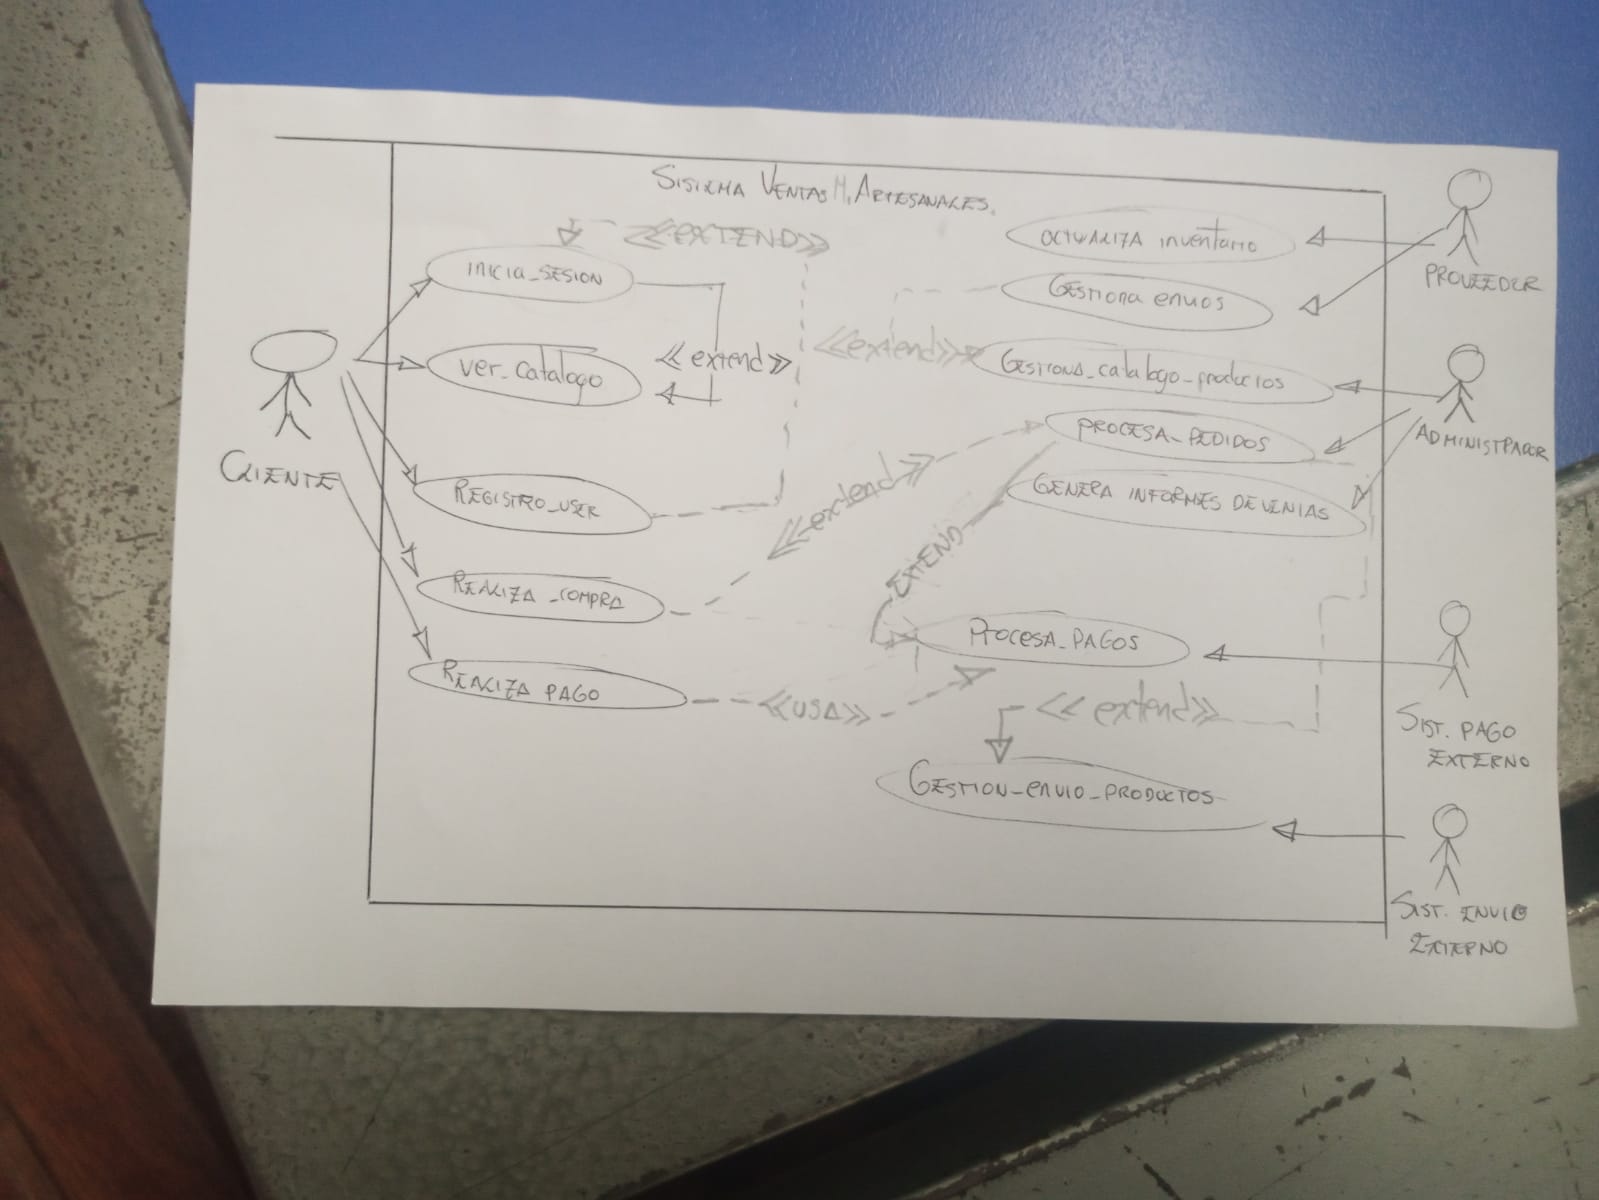 SISTEMA VENTAS M. ARTESANALES.
<<EXTEND>>
INICIA_SESION
VER_CATALOGO
<<extend>>
REGISTRO_USER
REALIZA_COMPRA
REALIZA PAGO
CLIENTE
<<extend>>
<<extend>>
EXTEND
<<USA>>
ACTUALIZA inventario
GESTIONA envios
GESTIONA_catalogo_productos
PROCESA_PEDIDOS
GENERA INFORMES DE VENTAS
PROCESA_PAGOS
<<extend>>
GESTION_ENVIO_PRODUCTOS
PROVEEDOR
ADMINISTRADOR
SIST. PAGO
EXTERNO
SIST. ENVIO
EXTERNO